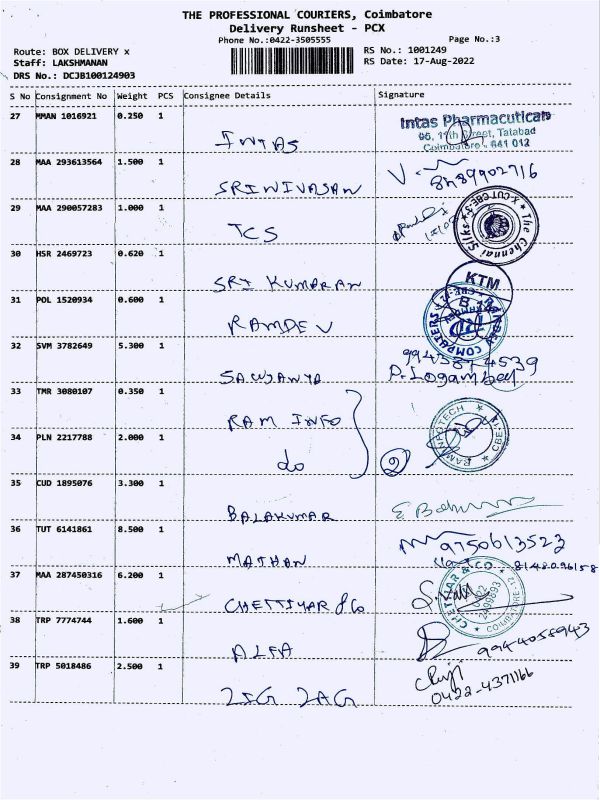 THE PROFESSIONAL COURIERS, Coimbatore
Delivery Runsheet - PCX
Phone No.:0422-3505555
Page No.:3
Route: BOX DELIVERY x
RS No.: 1001249
Staff: LAKSHMANAN
RS Date: 17-Aug-2022
DRS No.: DCJB100124903
S No Consignment No Weight PCS Consignee Details Signature
27 MMAN 1016921 0.250 1 INTAS
Intas Pharmacuticals
Coimbatore - 641 012
28 MAA 293613564 1.500 1 SRINIVASAN
29 MAA 290057283 1.000 1 TCS
The Chennai Silks
30 HSR 2469723 0.620 1 SRI KUMARAN
KTM
31 POL 1520934 0.600 1 RAMDEV
COMPUTERS
32 SVM 3782649 5.300 1 SAWJANYA
P. Logambal
33 TMR 3080107 0.350 1 RAM INFO
RAM INFOTECH
34 PLN 2217788 2.000 1 do 2
35 CUD 1895076 3.300 1 BALAKUMAR
36 TUT 6141861 8.500 1 MATHAN
9750613523
37 MAA 287450316 6.200 1 CHETTIYAR & Co
CHETTIAR & CO. COIMBATORE-12
38 TRP 7774744 1.600 1 ALFA
9944055943
39 TRP 5018486 2.500 1 ZIG ZAG
0422-4371166